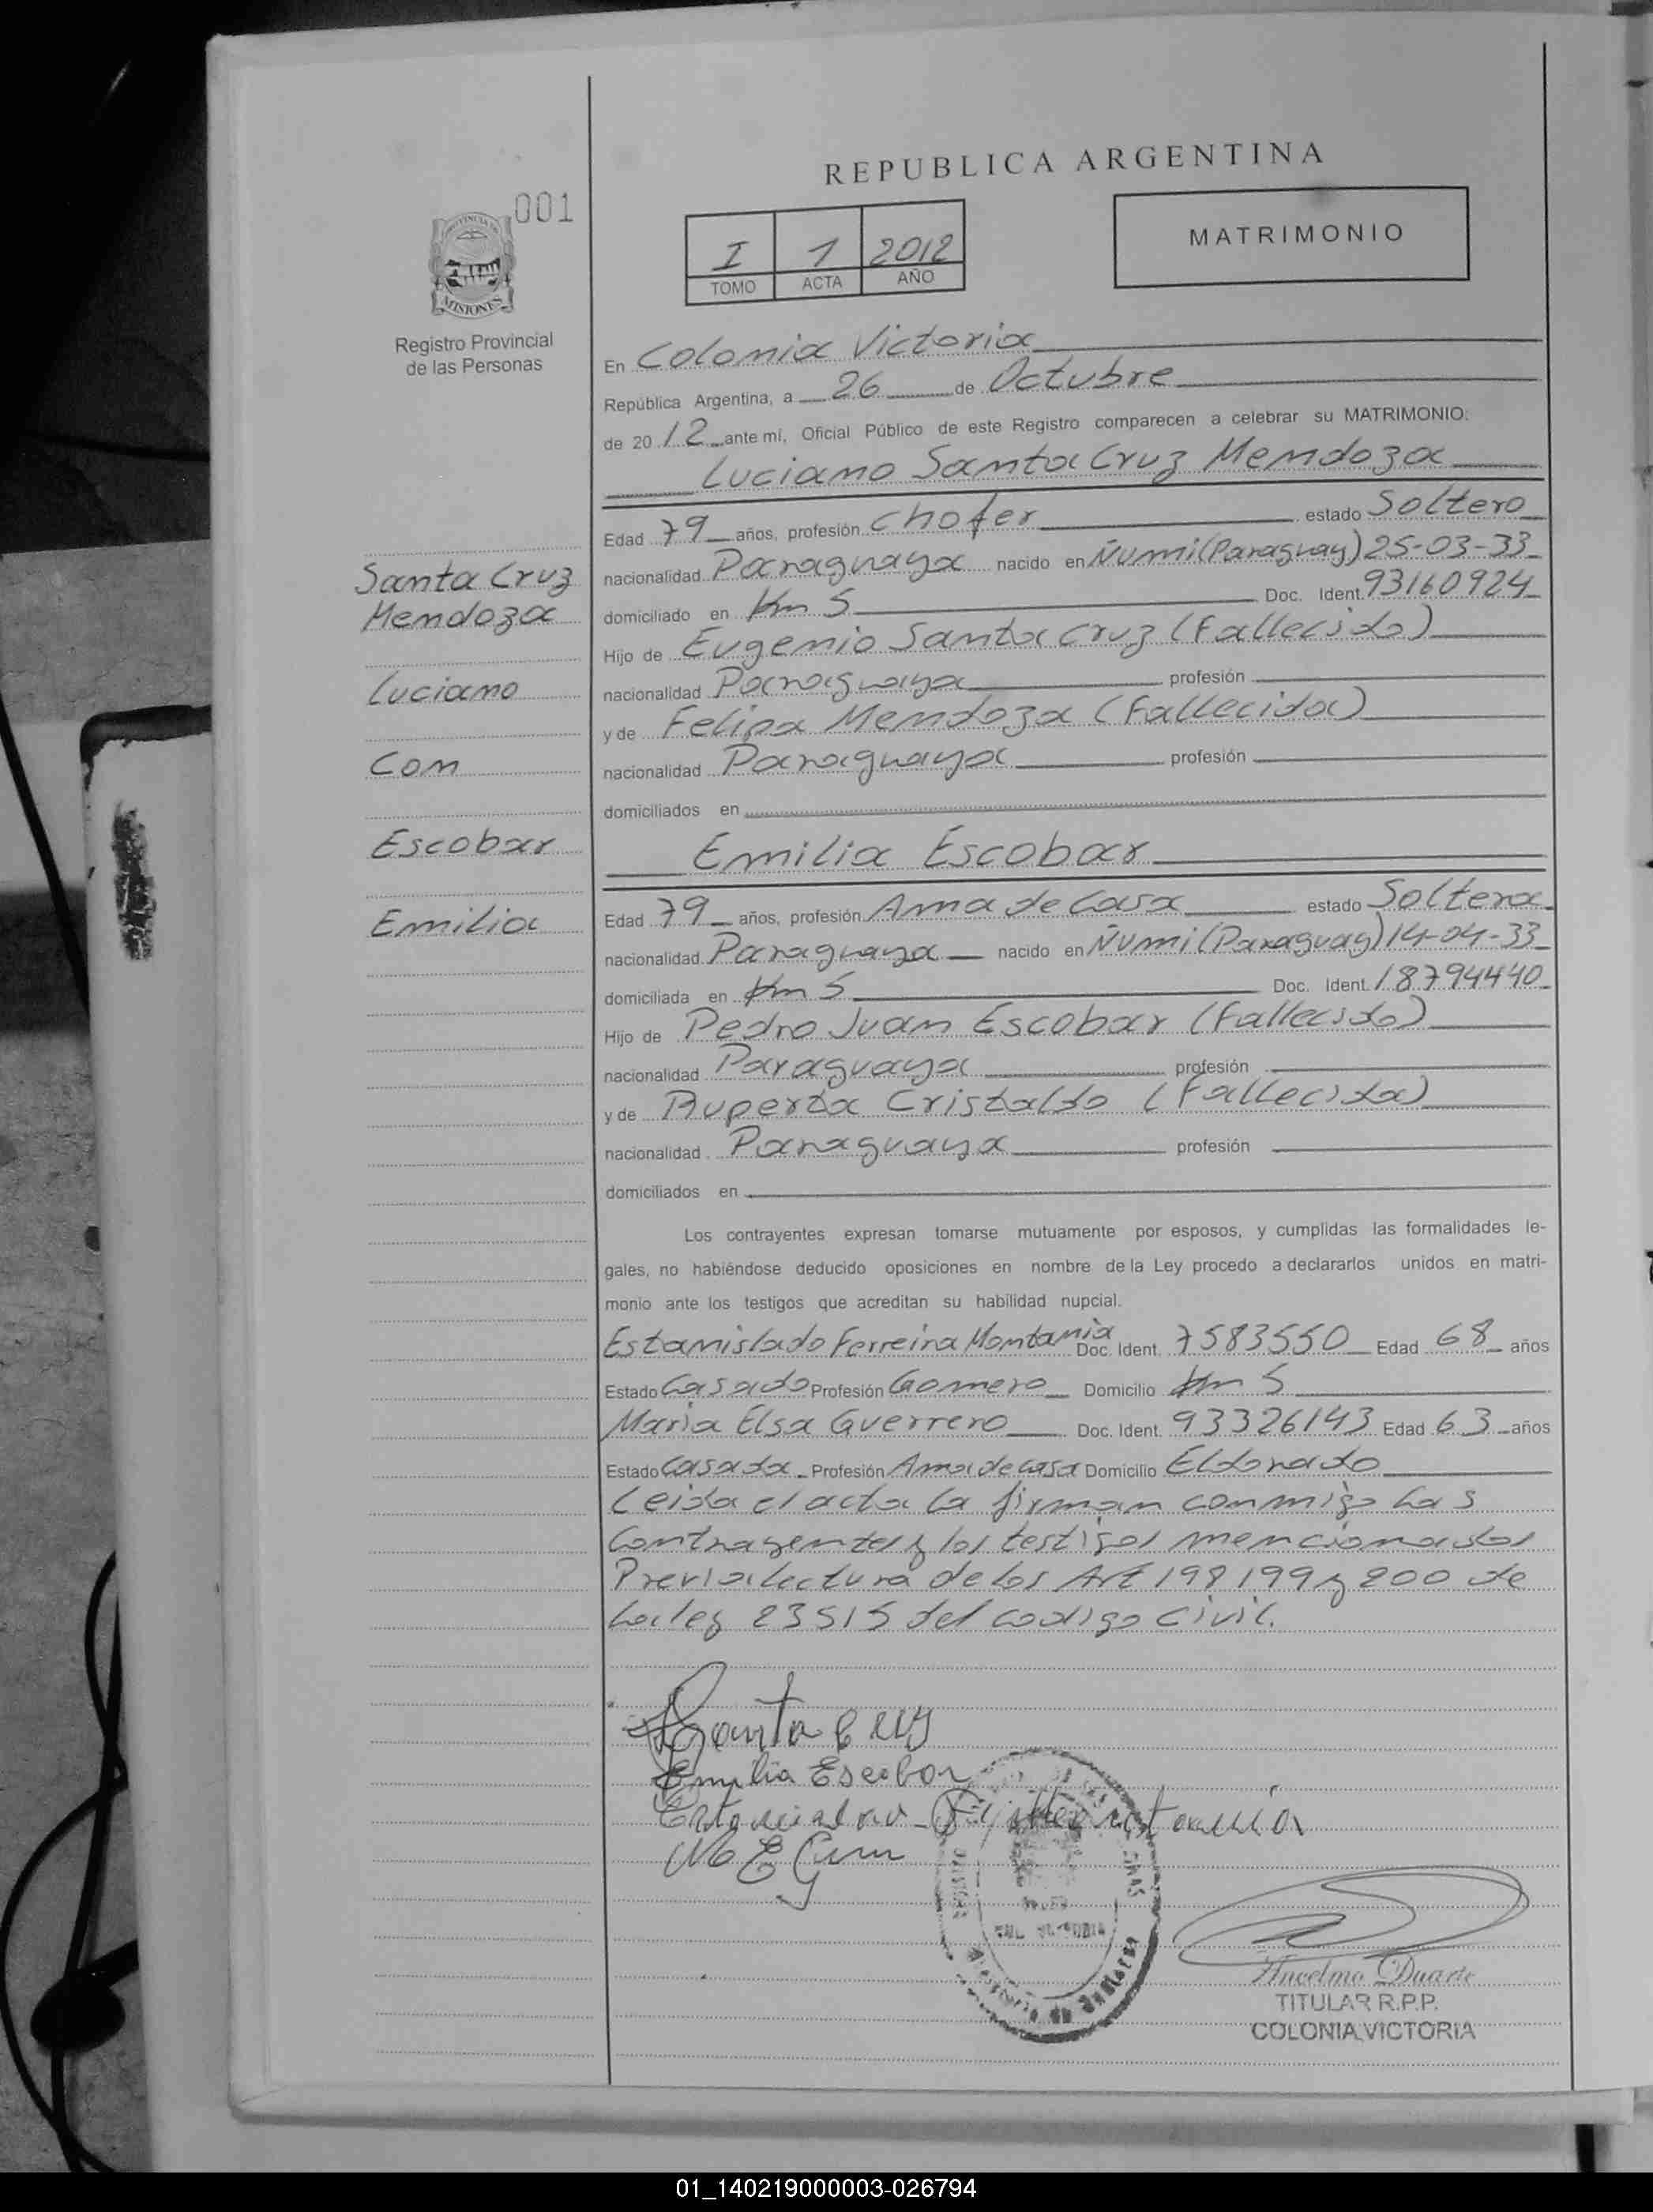 REPUBLICA ARGENTINA
001
PROVINCIA DE
MISIONES
Registro Provincial
de las Personas
I 1 2012
TOMO ACTA AÑO
MATRIMONIO
En Colonia Victoria
República Argentina, a 26 de Octubre
de 2012 ante mí, Oficial Público de este Registro comparecen a celebrar su MATRIMONIO:
Luciano Santa Cruz Mendoza
Edad 79 años, profesión Chofer estado Soltero
nacionalidad Paraguaya nacido en Ñumi (Paraguay) 25-03-33
domiciliado en Km 5 Doc. Ident. 93160924
Hijo de Eugenio Santa Cruz (Fallecido)
nacionalidad Paraguaya profesión
y de Felipa Mendoza (Fallecida)
nacionalidad Paraguaya profesión
domiciliados en
Emilia Escobar
Edad 79 años, profesión Ama de Casa estado Soltera
nacionalidad Paraguaya nacido en Ñumi (Paraguay) 14-04-33
domiciliada en Km 5 Doc. Ident. 18794440
Hijo de Pedro Juan Escobar (Fallecido)
nacionalidad Paraguaya profesión
y de Ruperta Cristaldo (Fallecida)
nacionalidad Paraguaya profesión
domiciliados en
Santa Cruz
Mendoza
Luciano
Con
Escobar
Emilia
Los contrayentes expresan tomarse mutuamente por esposos, y cumplidas las formalidades le-
gales, no habiéndose deducido oposiciones en nombre de la Ley procedo a declararlos unidos en matri-
monio ante los testigos que acreditan su habilidad nupcial.
Estanislado Ferreira Montania Doc. Ident. 7583550 Edad 68 años
Estado Casado Profesión Gomero Domicilio Km 5
Maria Elsa Guerrero Doc. Ident. 93326143 Edad 63 años
Estado Casada Profesión Ama de casa Domicilio Eldorado
Leida el acta la firman conmigo Las
Contrayentes y los testigos mencionados
Previa lectura de los Art 198 199 y 200 de
La ley 23515 del codigo civil.
Santa Cruz
Emilia Escobar
Anselmo Duarte
TITULAR R.P.P.
COLONIA VICTORIA
01_140219000003-026794